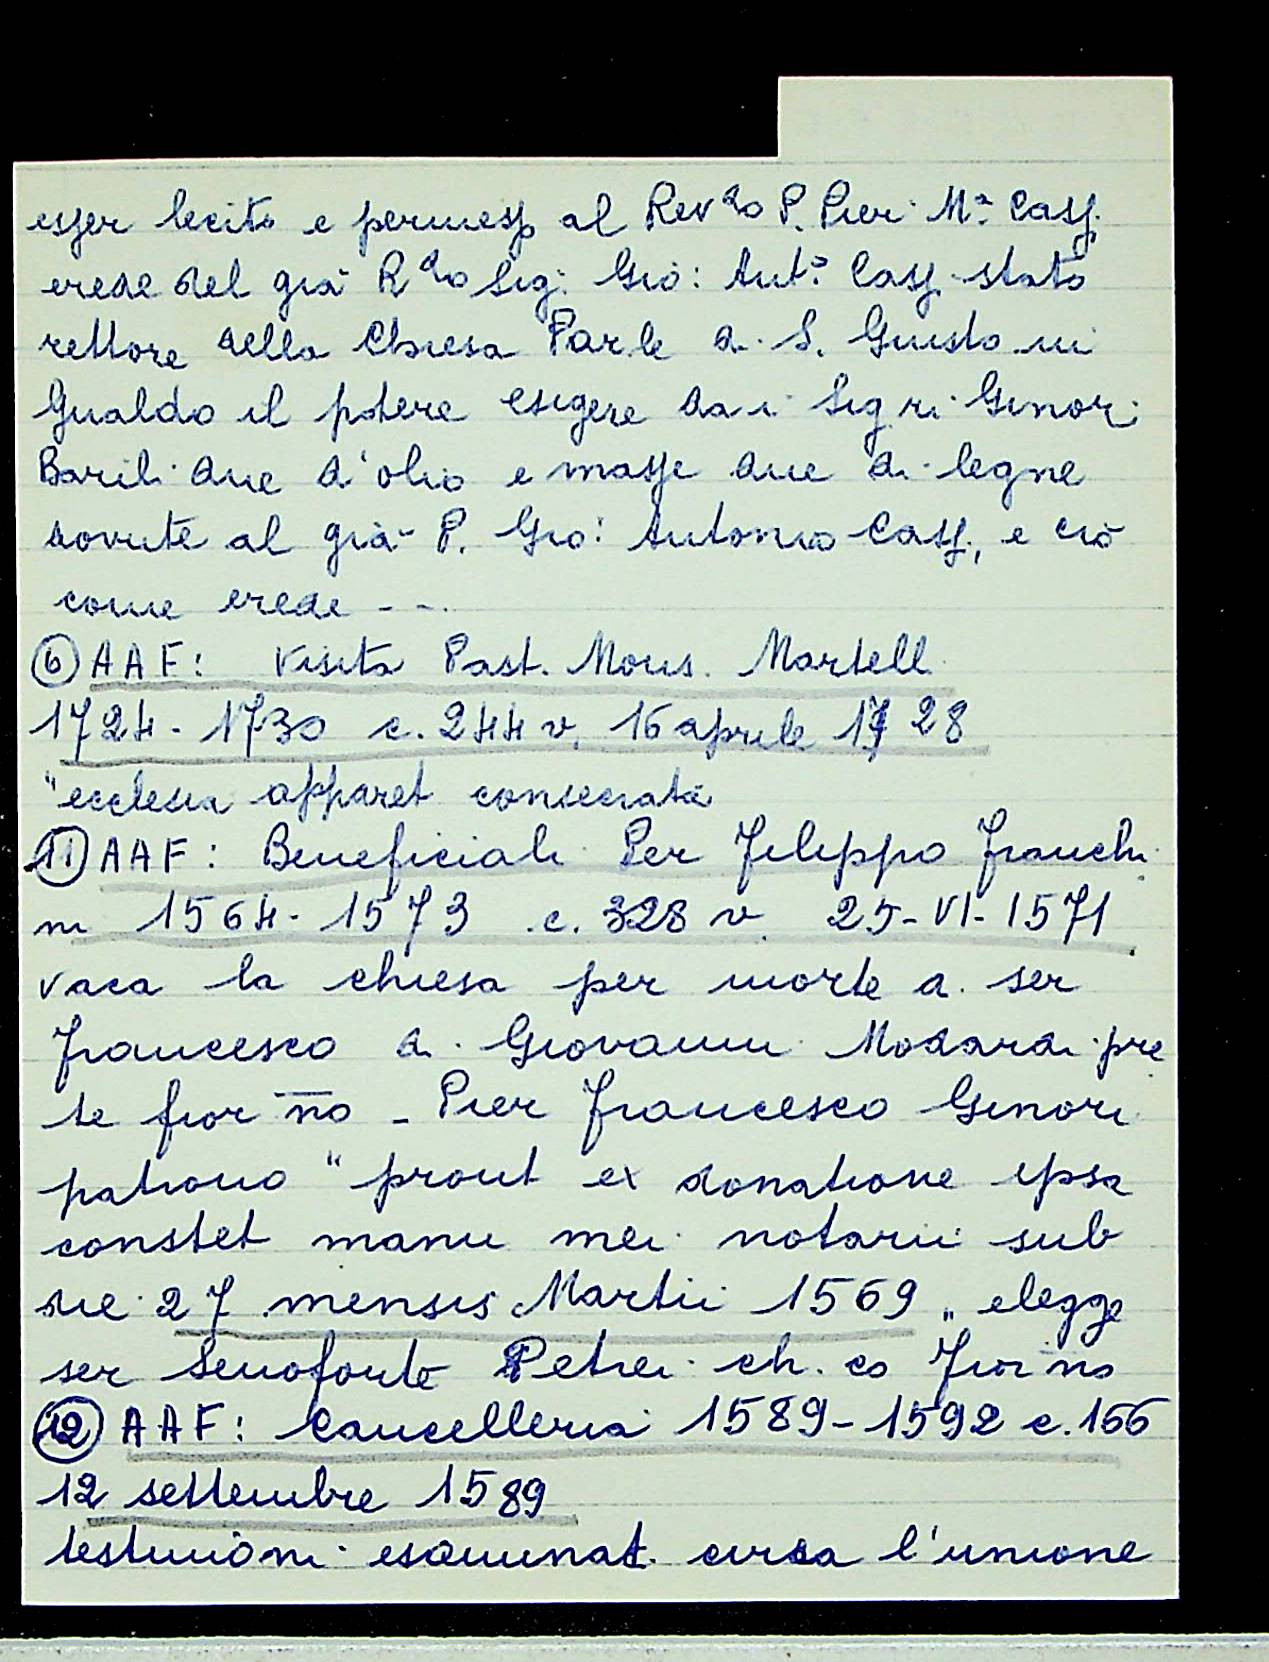 esser lecito e permesso al Rev do P. Pier Mª Cass.
erede del già R do Sig: Gio: Ant° Cass. stato
rettore della Chiesa Par le di S. Giusto in
Gualdo il potere esigere dai Sig ri Ginori
Barili due d'olio e masse due di legne
dovute al già P. Gio: Antonio Cass., e ciò
come erede - - .
⑥ AAF: Visita Past. Mons. Martelli
1724 - 1730 c. 244 v, 16 aprile 1728
"ecclesia apparet consecrata
⑪ AAF: Beneficiali Per Filippo Franchi
ni 1564 - 1573 c. 328 v. 25-VI-1571
vaca la chiesa per morte di ser
Francesco di Giovanni Modardi pre
te fior no - Pier Francesco Ginori
patrono "prout ex donatione ipsa
constet manu mei notarii sub
die 27 mensis Martii 1569" elegge
ser Senofonte Petrei ch. co fior no
⑫ AAF: Cancelleria 1589-1592 c. 156
12 settembre 1589
testimoni esaminati circa l'unione